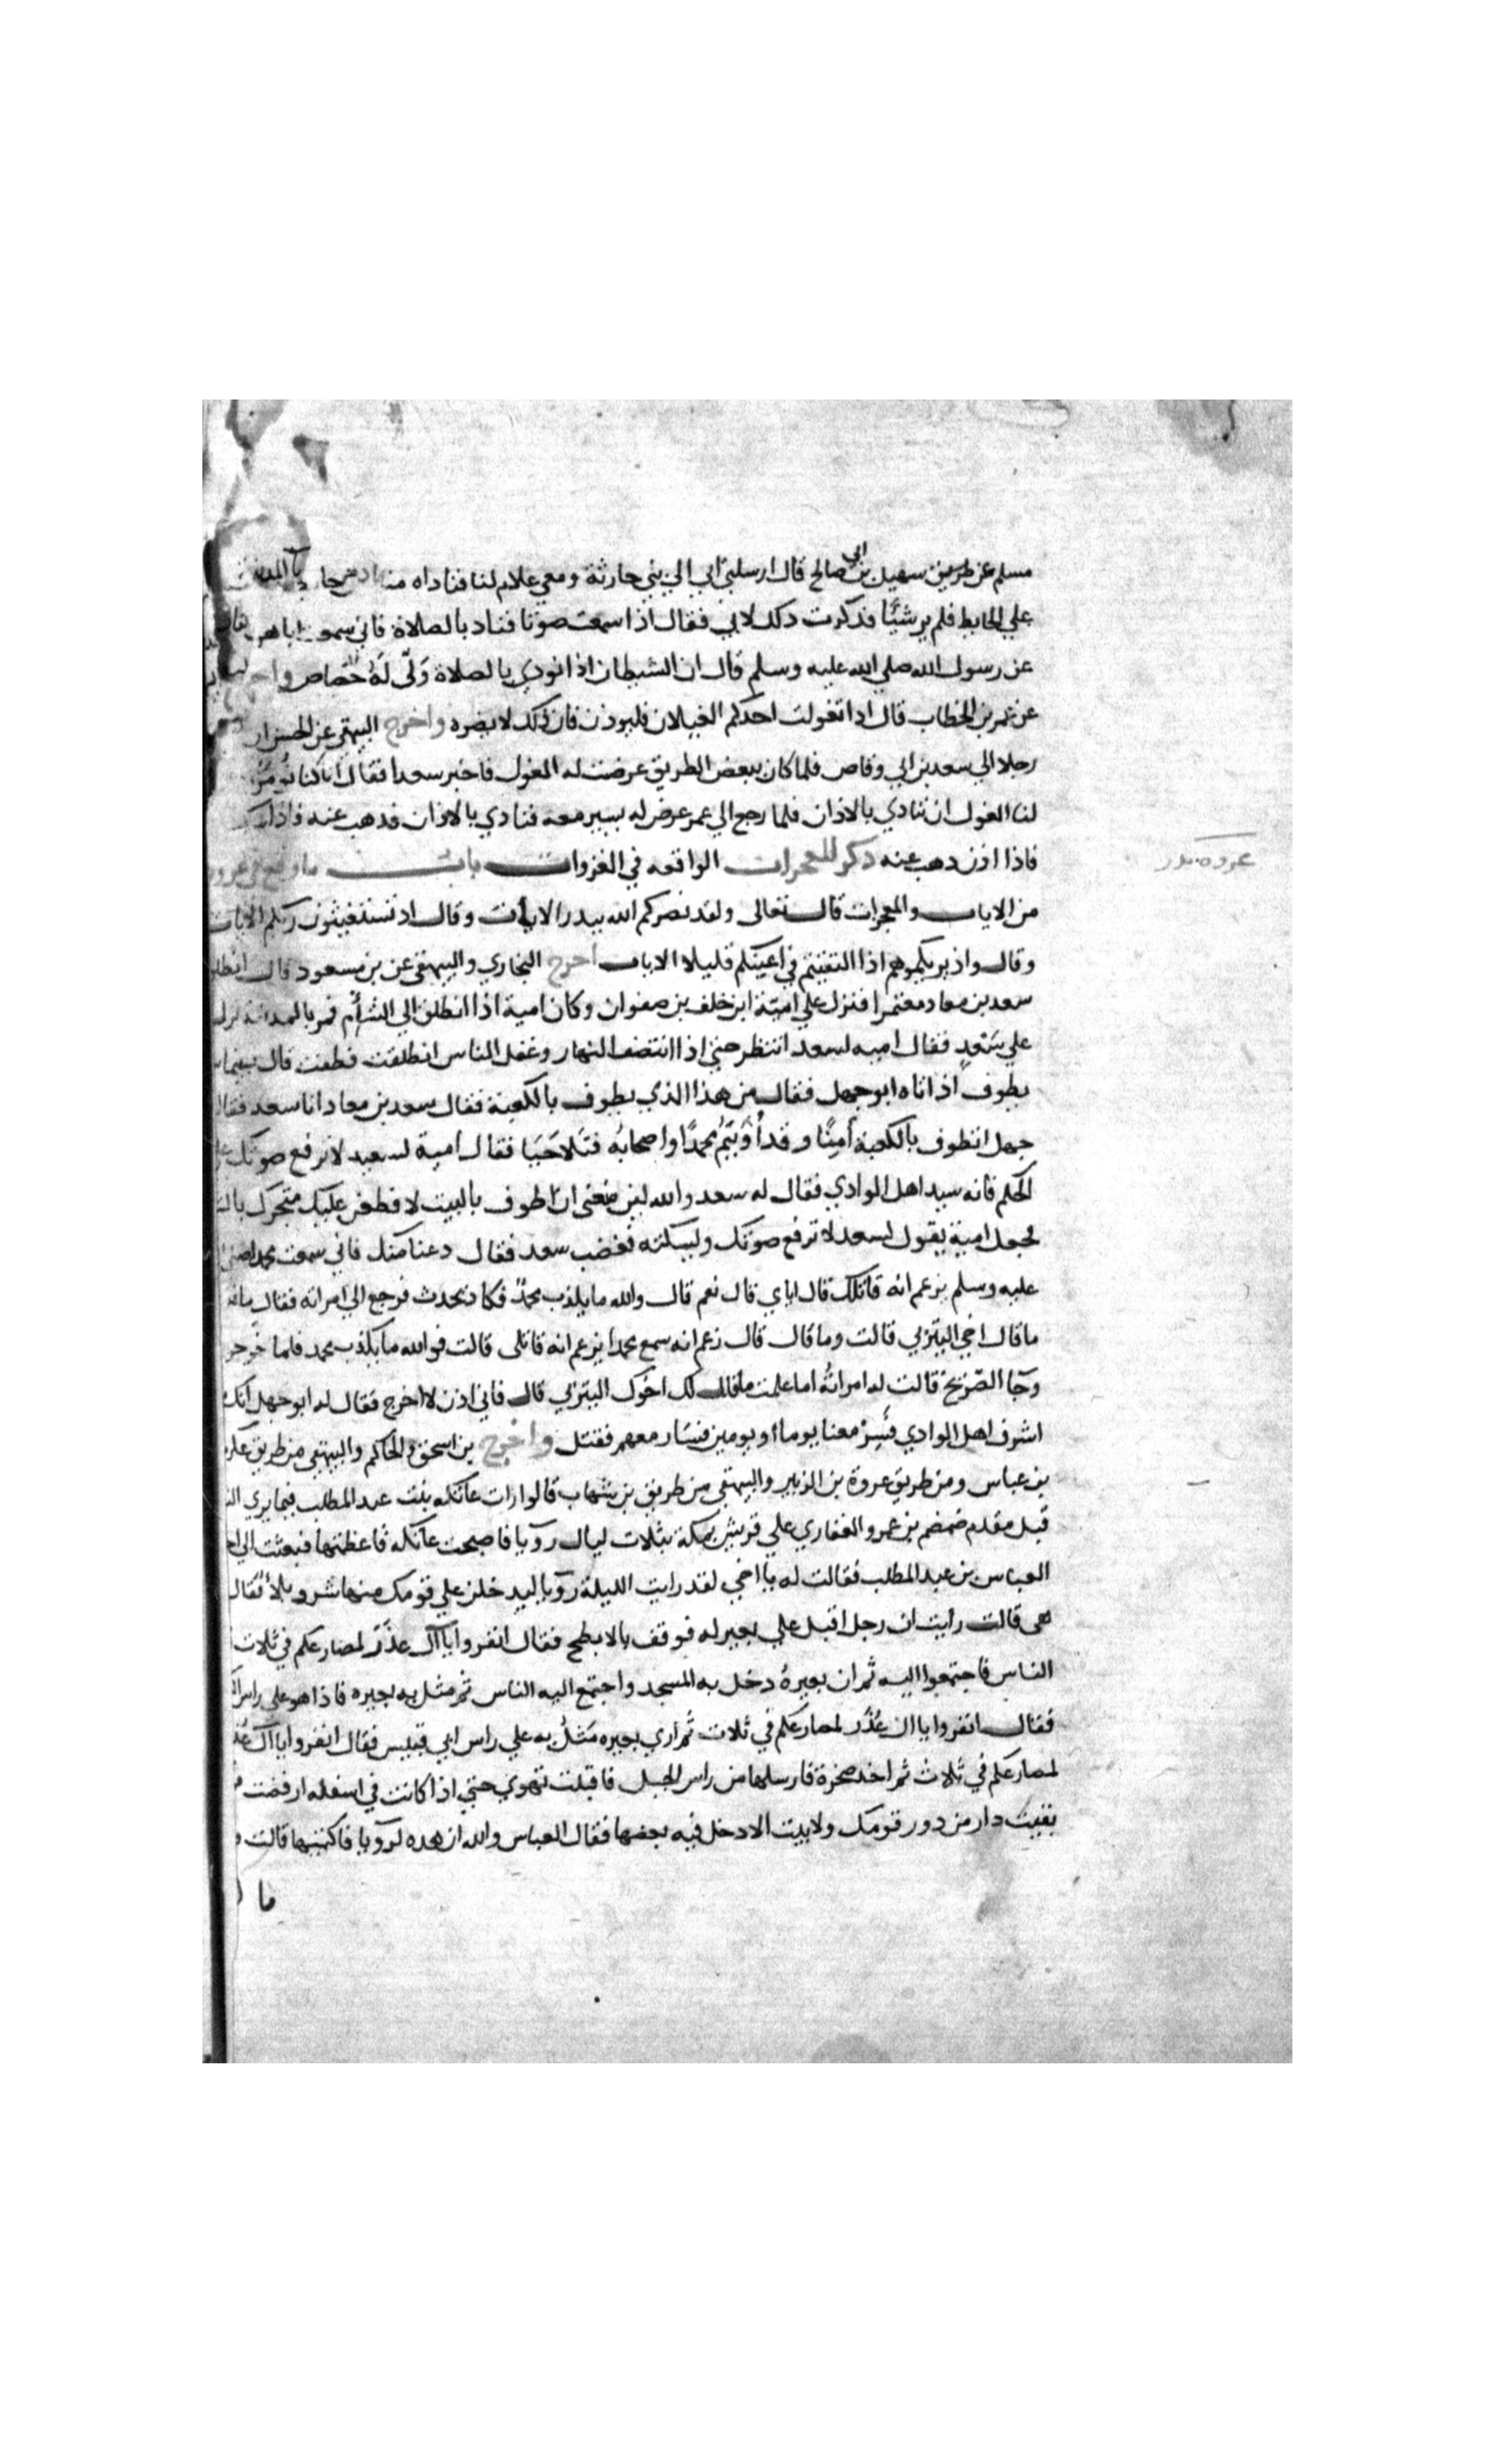 مسلم عن طريق سهيل بن ابي صالح قال ارسلني ابي الي بني حارثة ومعي غلام لنا فناداه
علي الحايط فلم ير شيئا فذكرت ذلك لابي فقال اذا سمعت صوتا فناد بالصلاة فاني سمعت ابا هر
عن رسول الله صلي الله عليه وسلم قال ان الشيطان اذا نودي بالصلاة ولّى لهُ حُصاص واخرج
عن عمر بن الخطاب قال اذا تغولت احدكم الغيلان فليوذن فان ذلك لا يضره واخرج البيهقي عن الحسن ان
رجلا الي سعد بن ابي وقاص فلما كان ببعض الطريق عرضت له الغول فاخبر سعدا فقال انا كنا نُومَرُ
لنا الغول ان ننادي بالاذان فلما رجع الي عمر عرض له يسير معه فنادي بالاذان فذهب عنه فاذا
فاذا اذن ذهب عنه ذكر المعجزات الواقعه في الغزوات باب ما وقع في غزوة
عزوة بدر
من الايات والمعجزات قال تعالى ولقد نصركم الله ببدر الايات وقال اذ تستغيثون ربكم الايات
وقال واذ يريكموهم اذا التقيتم في اعينكم قليلا الايات اخرج البخاري والبيهقي عن بن مسعود قال انطلق
سعد بن معاد معتمرا فنزل علي اميّة ابن خلف بن صفوان وكان امية اذا انطلق الي الشأم فمر بالمدينة نزل
علي سَعْدٍ فقال اميه لسعد انتظر حتي اذا انتصف النهار وغفل الناس انطلقت فطفت قال بينما
يطوف اذ اتاه ابو جهل فقال من هذا الذي يطوف بالكعبة فقال سعد بن معاد انا سعد فقال
جهل اتطوف بالكعبة آمِنًا وقد أوَيتُم محمدًا واصحابُه فتَلاحَيَا فقال امية لسعد لا ترفع صوتك علي
الحكم فانه سيد اهل الوادي فقال له سعد والله لين منعتني ان اطوف بالبيت لاقطعن عليك متجرك بالشا
فجعل امية يقول لسعد لا ترفع صوتك وليسكته فغضب سعد فقال دعنا منك فاني سمعت محمدا صلى
عليه وسلم يزعم انه قاتلك قال اياي قال نعم قال والله ما يكذب محمدٌ فكاد يحدث فرجع الي امراته فقال
ما قال اخي اليثربي قالت وما قال قال زعم انه سمع محمدا يزعم انه قاتلي قالت فوالله ما يكذب محمد فلما خرجو
وجآ الصّرِيخ قالت له امراتُه اما علمت ما قال لك اخوك اليثربي قال فاني اذن لا اخرج فقال له ابو جهل انك
اشرف اهل الوادي فَسِرْ معنا يوما او يومين فسَار معهم فقتل واخرج بن اسحق والحاكم والبيهقي من طريق عكرم
بن عباس ومن طريق عروة بن الزبير والبيهقي من طريق بن شهاب قالوا رات عاتكه بنت عبد المطلب فيما يري النا
قبل مقدم ضمضم بن عمرو الغفاري علي قريش بمكة بثلات ليال رويا فاصبحت عاتكه فاعظمتها فبعثت الي اخ
العباس بن عبد المطلب فقالت له يا اخي لقد رايت الليلة رويا ليدخلن علي قومك منها شر وبلاٌ فقال
هي قالت رايت ان رجل اقبل علي بعير له فوقف بالابطح فقال انفروا يا آل عذَر لمصارعكم في ثلات
الناس فاجتمعوا اليه ثم ان بعيرهُ دخل به المسجد واجتمع اليه الناس ثم مثل به بعيره فاذا هو علي راس
فقال انفروا يا ال عُذَر لمصارعكم في ثلات ثم اري بعيره مَثلُ به علي راس ابي قبيس فقال انفروا يا آل
لمصارعكم في ثلاث ثم اخد صخرة فارسلها من راس الجبل فاقبلت تهوي حتي اذا كانت في اسفله ارفضت
بقيت دار من دور قومك ولا بيت الا دخل فيه بعضها فقال العباس والله ان هده لرويا فاكتميها قالت
ما